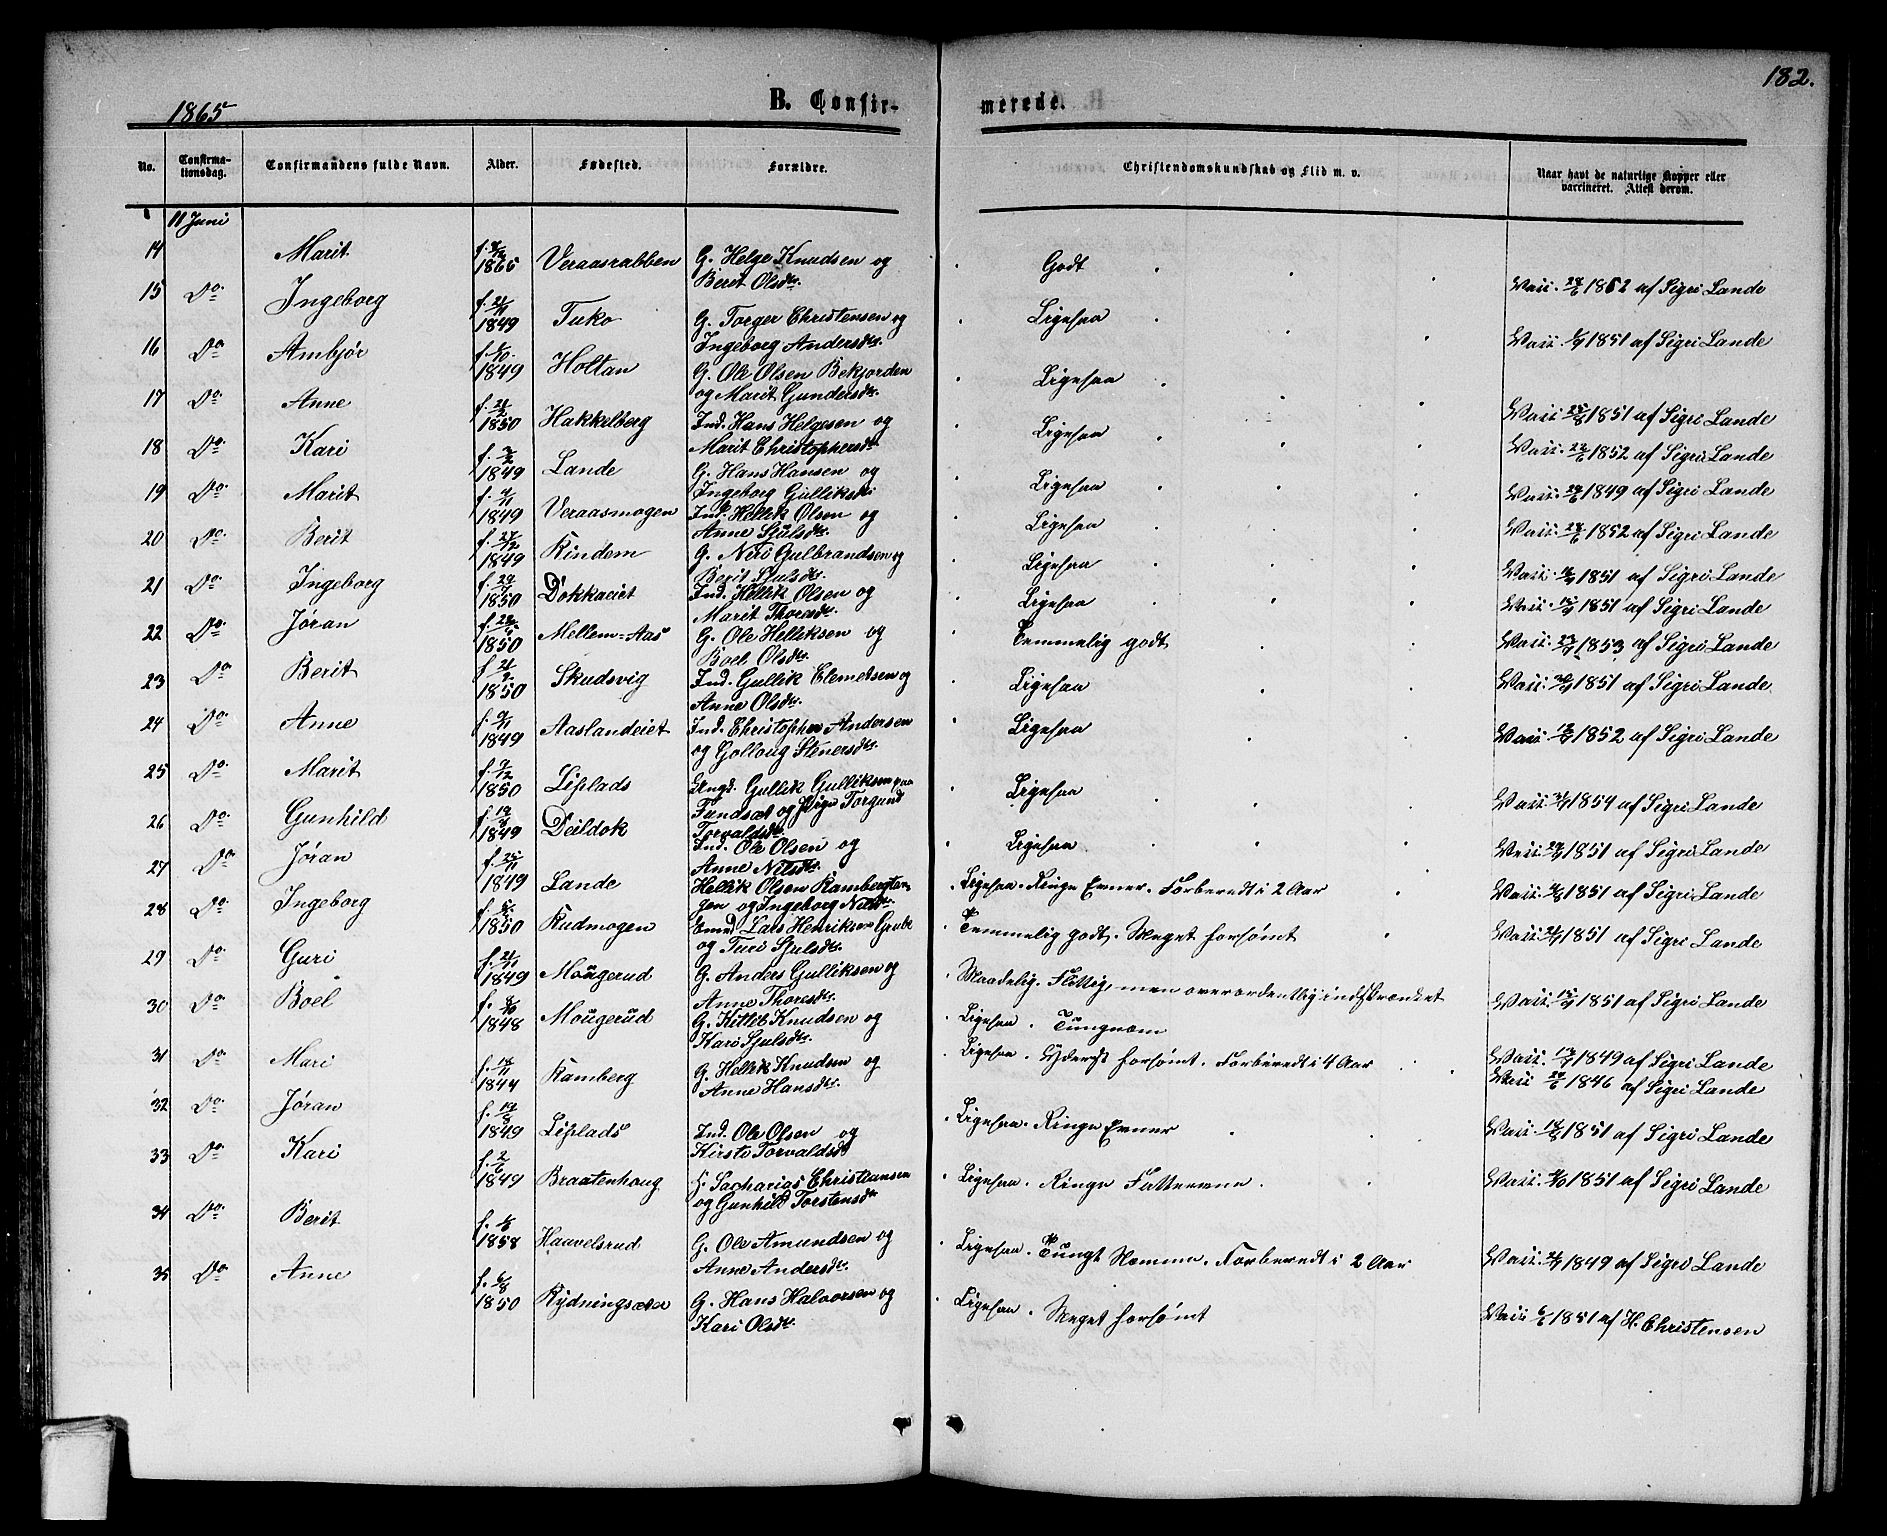 182.
1865 B. Confirmerede.
No. Confirmationsdag. Confirmandens fulde Navn. Alder. Fødested. Forældre. Christendomskundskab og Flid m. v. Naar havt de naturlige Kopper eller vaccineret. Attest derom.
11 Juni
14 Marit f. 1865 Veraasrabben G. Helge Knudsen og Berit Olsdtr. Godt Vacc. 1852 af Sigri Lande
15 Do. Ingeborg f. 1849 Tuko G. Torger Christensen og Ingeborg Andersdtr. Ligesaa Vacc. 1851 af Sigri Lande
16 Do. Ambjør f. 1849 Holtan G. Ole Olsen Bekjorden og Marit Gundersdtr. Ligesaa
17 Do. Anne f. 21/2 1850 Hakkelberg Ind. Hans Helgesen og Marit Christophersdtr. Ligesaa Vacc. 1851 af Sigri Lande
18 Do. Kari f. 1849 Lande G. Hans Hansen og Ingeborg Gulliksd. Ligesaa Vacc. 1852 af Sigri Lande
19 Do. Marit f. 1849 Veraasmogen Ind. Hellik Olsen og Anne Sjulsdtr. Ligesaa Vacc. 1849 af Sigri Lande
20 Do. Berit f. 27/12 1849 Kindem G. Nils Gulbrandsen og Berit Sjulsdtr. Ligesaa Vacc. 1852 af Sigri Lande
21 Do. Ingeborg f. 1850 Dokkaeiet Ind. Hellik Olsen og Marit Thoresdtr. Ligesaa Vacc. 1851 af Sigri Lande
Vacc. 1851 af Sigri Lande
22 Do. Jøran f. 1850 Mellem-Aas G. Ole Helliksen og Boel Olsdtr. Temmelig godt Vacc. 1853 af Sigri Lande
23 Do. Berit f. 1850 Skudsvig Ind. Gullik Clemetsen og Anne Olsdtr. Ligesaa Vacc. 1851 af Sigri Lande
24 Do. Anne f. 1849 Aaslandeiet Ind. Christopher Andersen og Golloug Stenersdtr. Ligesaa Vacc. 1852 af Sigri Lande
25 Do. Marit f. 1850 Liplads Ungk. Gullik Gulliksen paa Fundsæt og Pige Torgund Torvaldsdtr. Ligesaa Vacc. 1854 af Sigri Lande
26 Do. Gunhild f. 1849 Deildok Ind. Ole Olsen og Anne Nilsdtr. Ligesaa Vacc. 1851 af Sigri Lande
27 Do. Jøran f. 25/11 1849 Lande Hellik Olsen Rambergten- gen og Ingeborg Nilsdtr. Ligesaa. Ringe Evner. Forberedt i 2 Aar Vacc. 1851 af Sigri Lande
28 Do. Ingeborg f. 1850 Rudmogen Lars Henriksen Grube og Turi Sjulsdtr. Temmelig godt. Meget forsømt Vacc. 1851 af Sigri Lande
29 Do. Guri f. 21/11 1849 Mougerud G. Anders Gulliksen og Anne Thoresdtr. Maadelig. Flittig, men overordentlig indskrænket Vacc. 1851 af Sigri Lande
30 Do. Boel f. 8/10 1848 Mougerud G. Kittil Knudsen og Kari Sjulsdtr. Ligesaa. Tungnæm Vacc. 1849 af Sigri Lande
31 Do. Mari f. 1844 Ramberg G. Hellik Knudsen og Anne Hansdtr. Ligesaa. Yderst forsømt. Forberedt i 4 Aar Vacc 1846 af Sigri Lande
32 Do. Jøran f. 1849 Liplads Ind. Ole Olsen og Kirsti Torvaldsd Ligesaa. Ringe Evner Vacc. 1851 af Sigri Lande
33 Do. Kari f. 2/6 1849 Braatenhoug F. Sacharias Christiansen og Gunhild Torstensdtr Ligesaa. Ringe Fatteevne. Vacc. 1851 af Sigri Lande
34 Do. Berit f. 1858 Haavelsrud G. Ole Amundsen og Anne Andersdtr. Ligesaa. Tungt Nemme. Forberedt i 2 Aar Vacc. 1849 af Sigri Lande
35 Do Anne f. 6/8 1850 Rydningsæter G. Hans Halvorsen og Kari Olsdtr. Ligesaa. Meget forsømt Vacc 1851 af H. Christensen